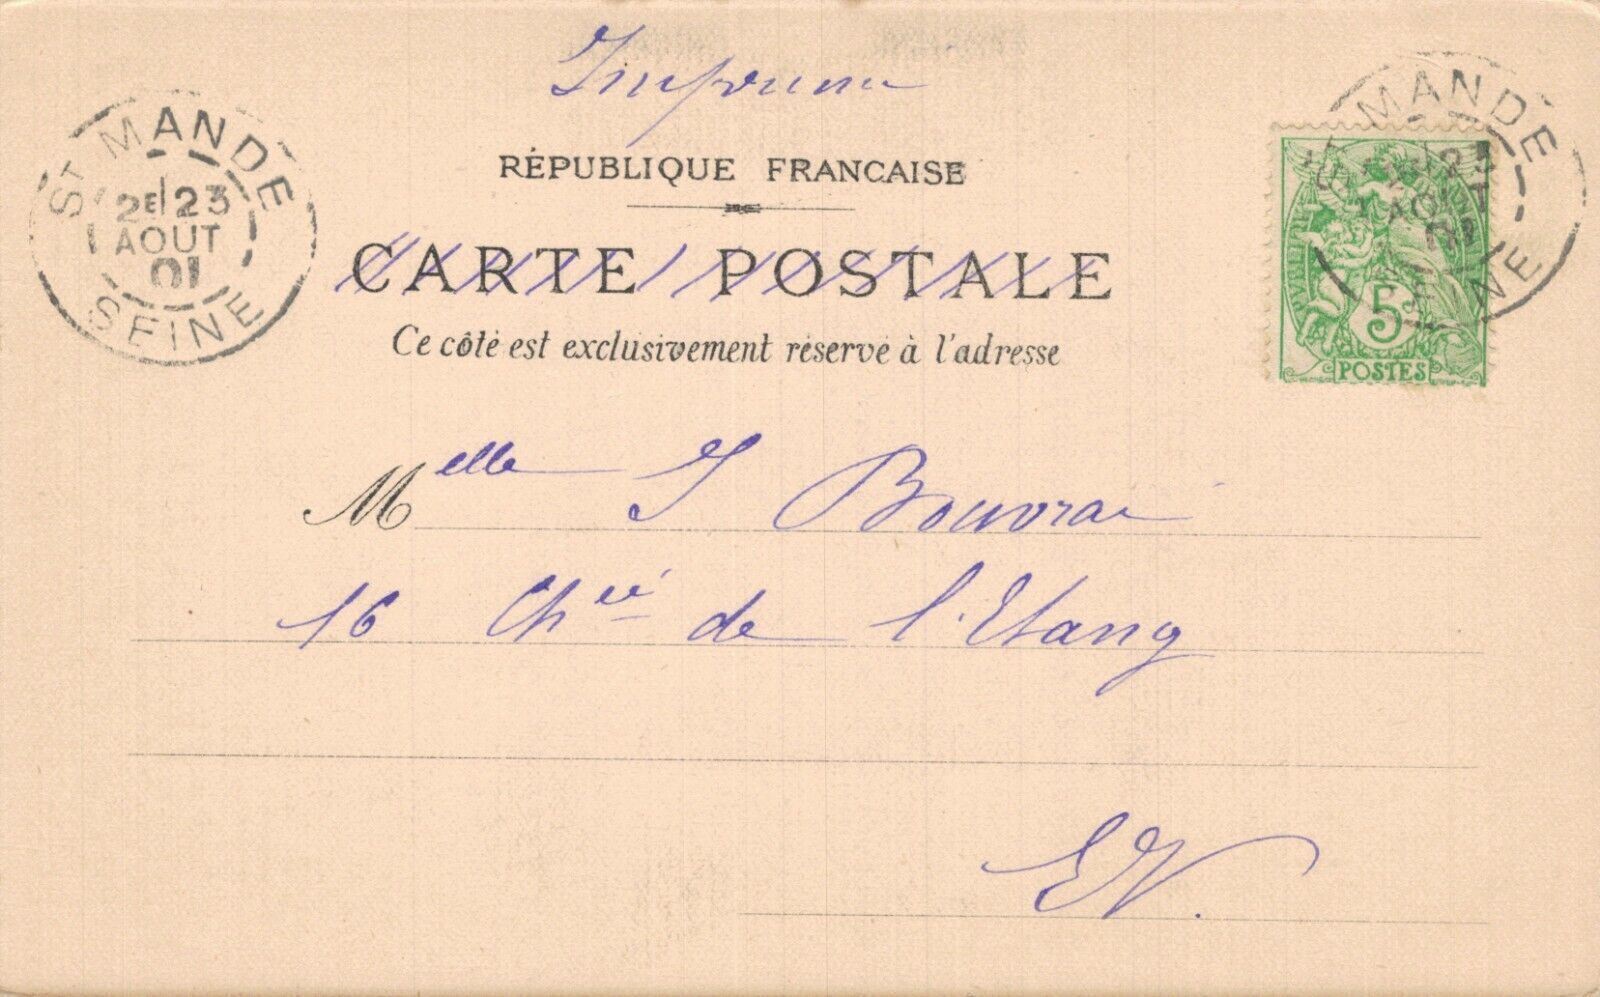 Imprimé
RÉPUBLIQUE FRANCAISE
CARTE POSTALE
Ce côté est exclusivement réservé à l'adresse
ST MANDE
2E 23
AOUT
01
SEINE
ST MANDE
23
AOUT
01
SEINE
5c
POSTES
Melle J Bouvrai
16 Chée de l'Etang
EV.